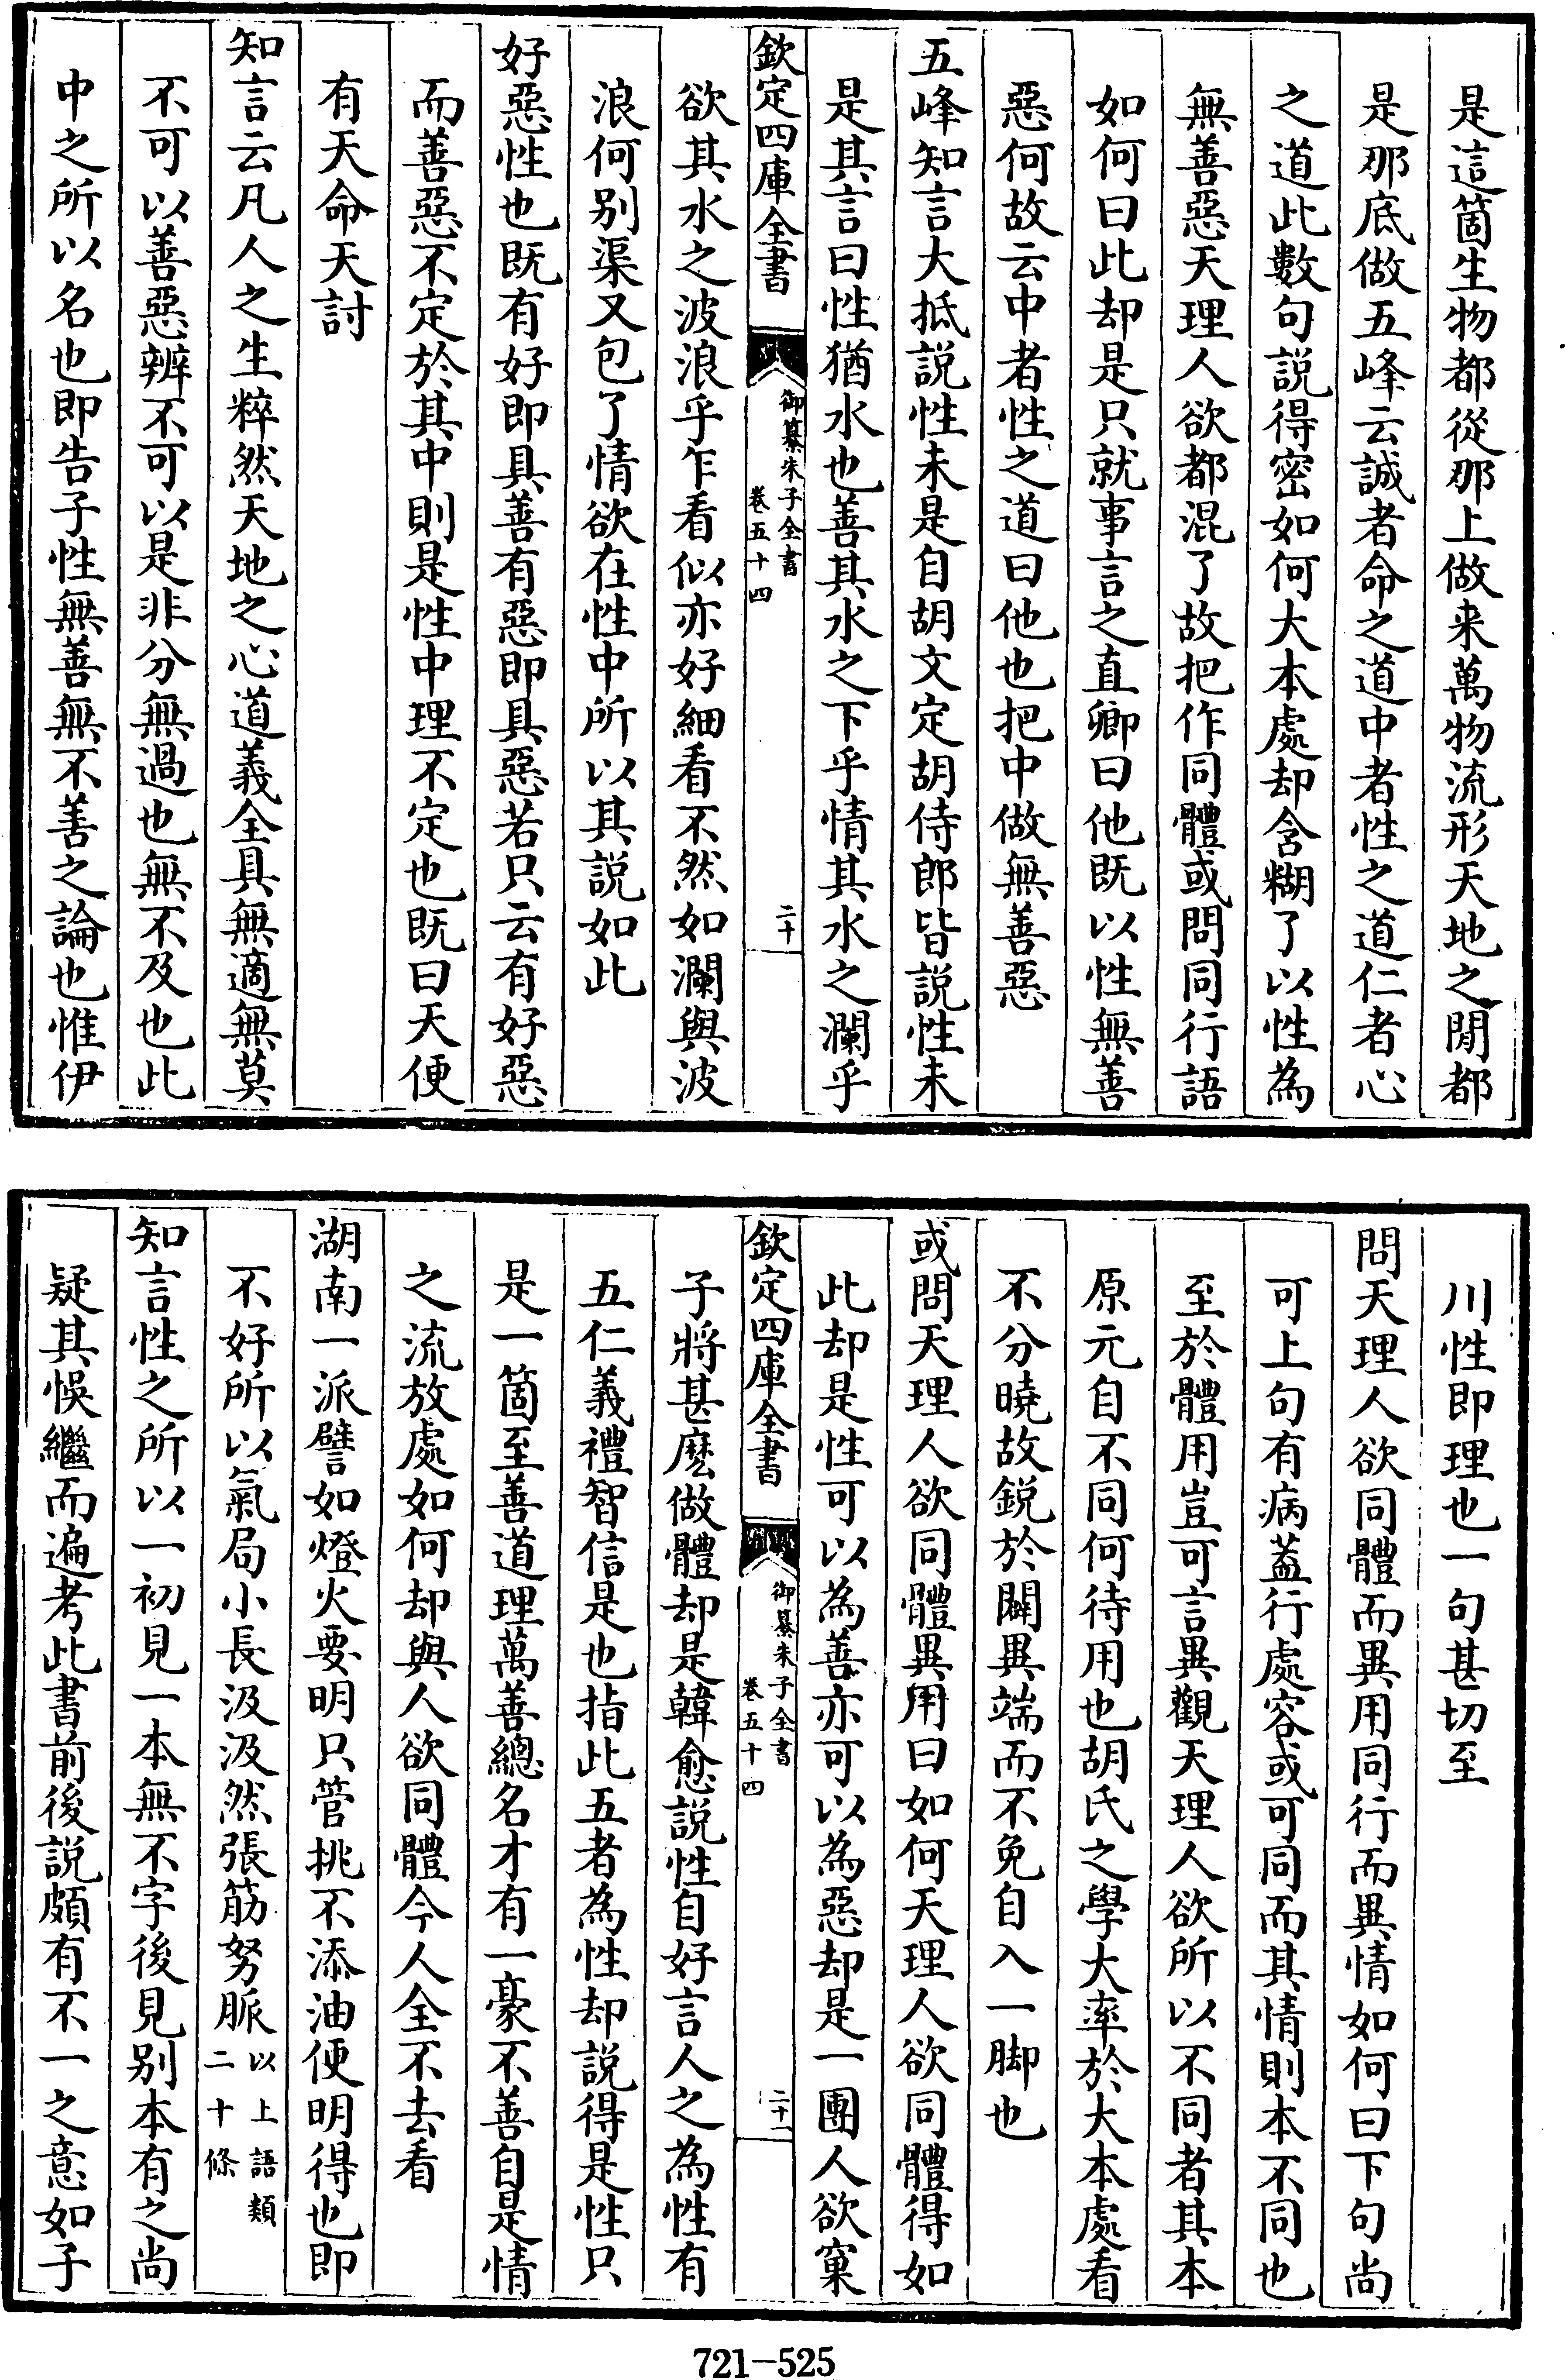 是這箇生物都從那上做来萬物流形天地之閒都
是那底做五峰云誠者命之道中者性之道仁者心
之道此數句説得密如何大本處却含糊了以性為
無善惡天理人欲都混了故把作同體或問同行語
如何曰此却是只就事言之直卿曰他既以性無善
惡何故云中者性之道曰他也把中做無善惡
五峰知言大抵説性未是自胡文定胡侍郎皆説性未
是其言曰性猶水也善其水之下乎情其水之瀾乎
欽定四庫全書
御纂朱子全書
卷五十四
二十
欲其水之波浪乎乍看似亦好細看不然如瀾與波
浪何别渠又包了情欲在性中所以其説如此
好惡性也既有好即具善有惡即具惡若只云有好惡
而善惡不定於其中則是性中理不定也既曰天便
有天命天討
知言云凡人之生粹然天地之心道義全具無適無莫
不可以善惡辨不可以是非分無過也無不及也此
中之所以名也即告子性無善無不善之論也惟伊
川性即理也一句甚切至
問天理人欲同體而異用同行而異情如何曰下句尚
可上句有病蓋行處容或可同而其情則本不同也
至於體用豈可言異觀天理人欲所以不同者其本
原元自不同何待用也胡氏之學大率於大本處看
不分曉故銳於闢異端而不免自入一脚也
或問天理人欲同體異用曰如何天理人欲同體得如
此却是性可以為善亦可以為惡却是一團人欲窠
欽定四庫全書
御纂朱子全書
卷五十四
二十一
子將甚麽做體却是韓愈説性自好言人之為性有
五仁義禮智信是也指此五者為性却説得是性只
是一箇至善道理萬善總名才有一豪不善自是情
之流放處如何却與人欲同體今人全不去看
湖南一派譬如燈火要明只管挑不添油便明得也即
不好所以氣局小長汲汲然張筋努脈以上語類二十條
知言性之所以一初見一本無不字後見别本有之尚
疑其悞繼而遍考此書前後説頗有不一之意如子
721-525